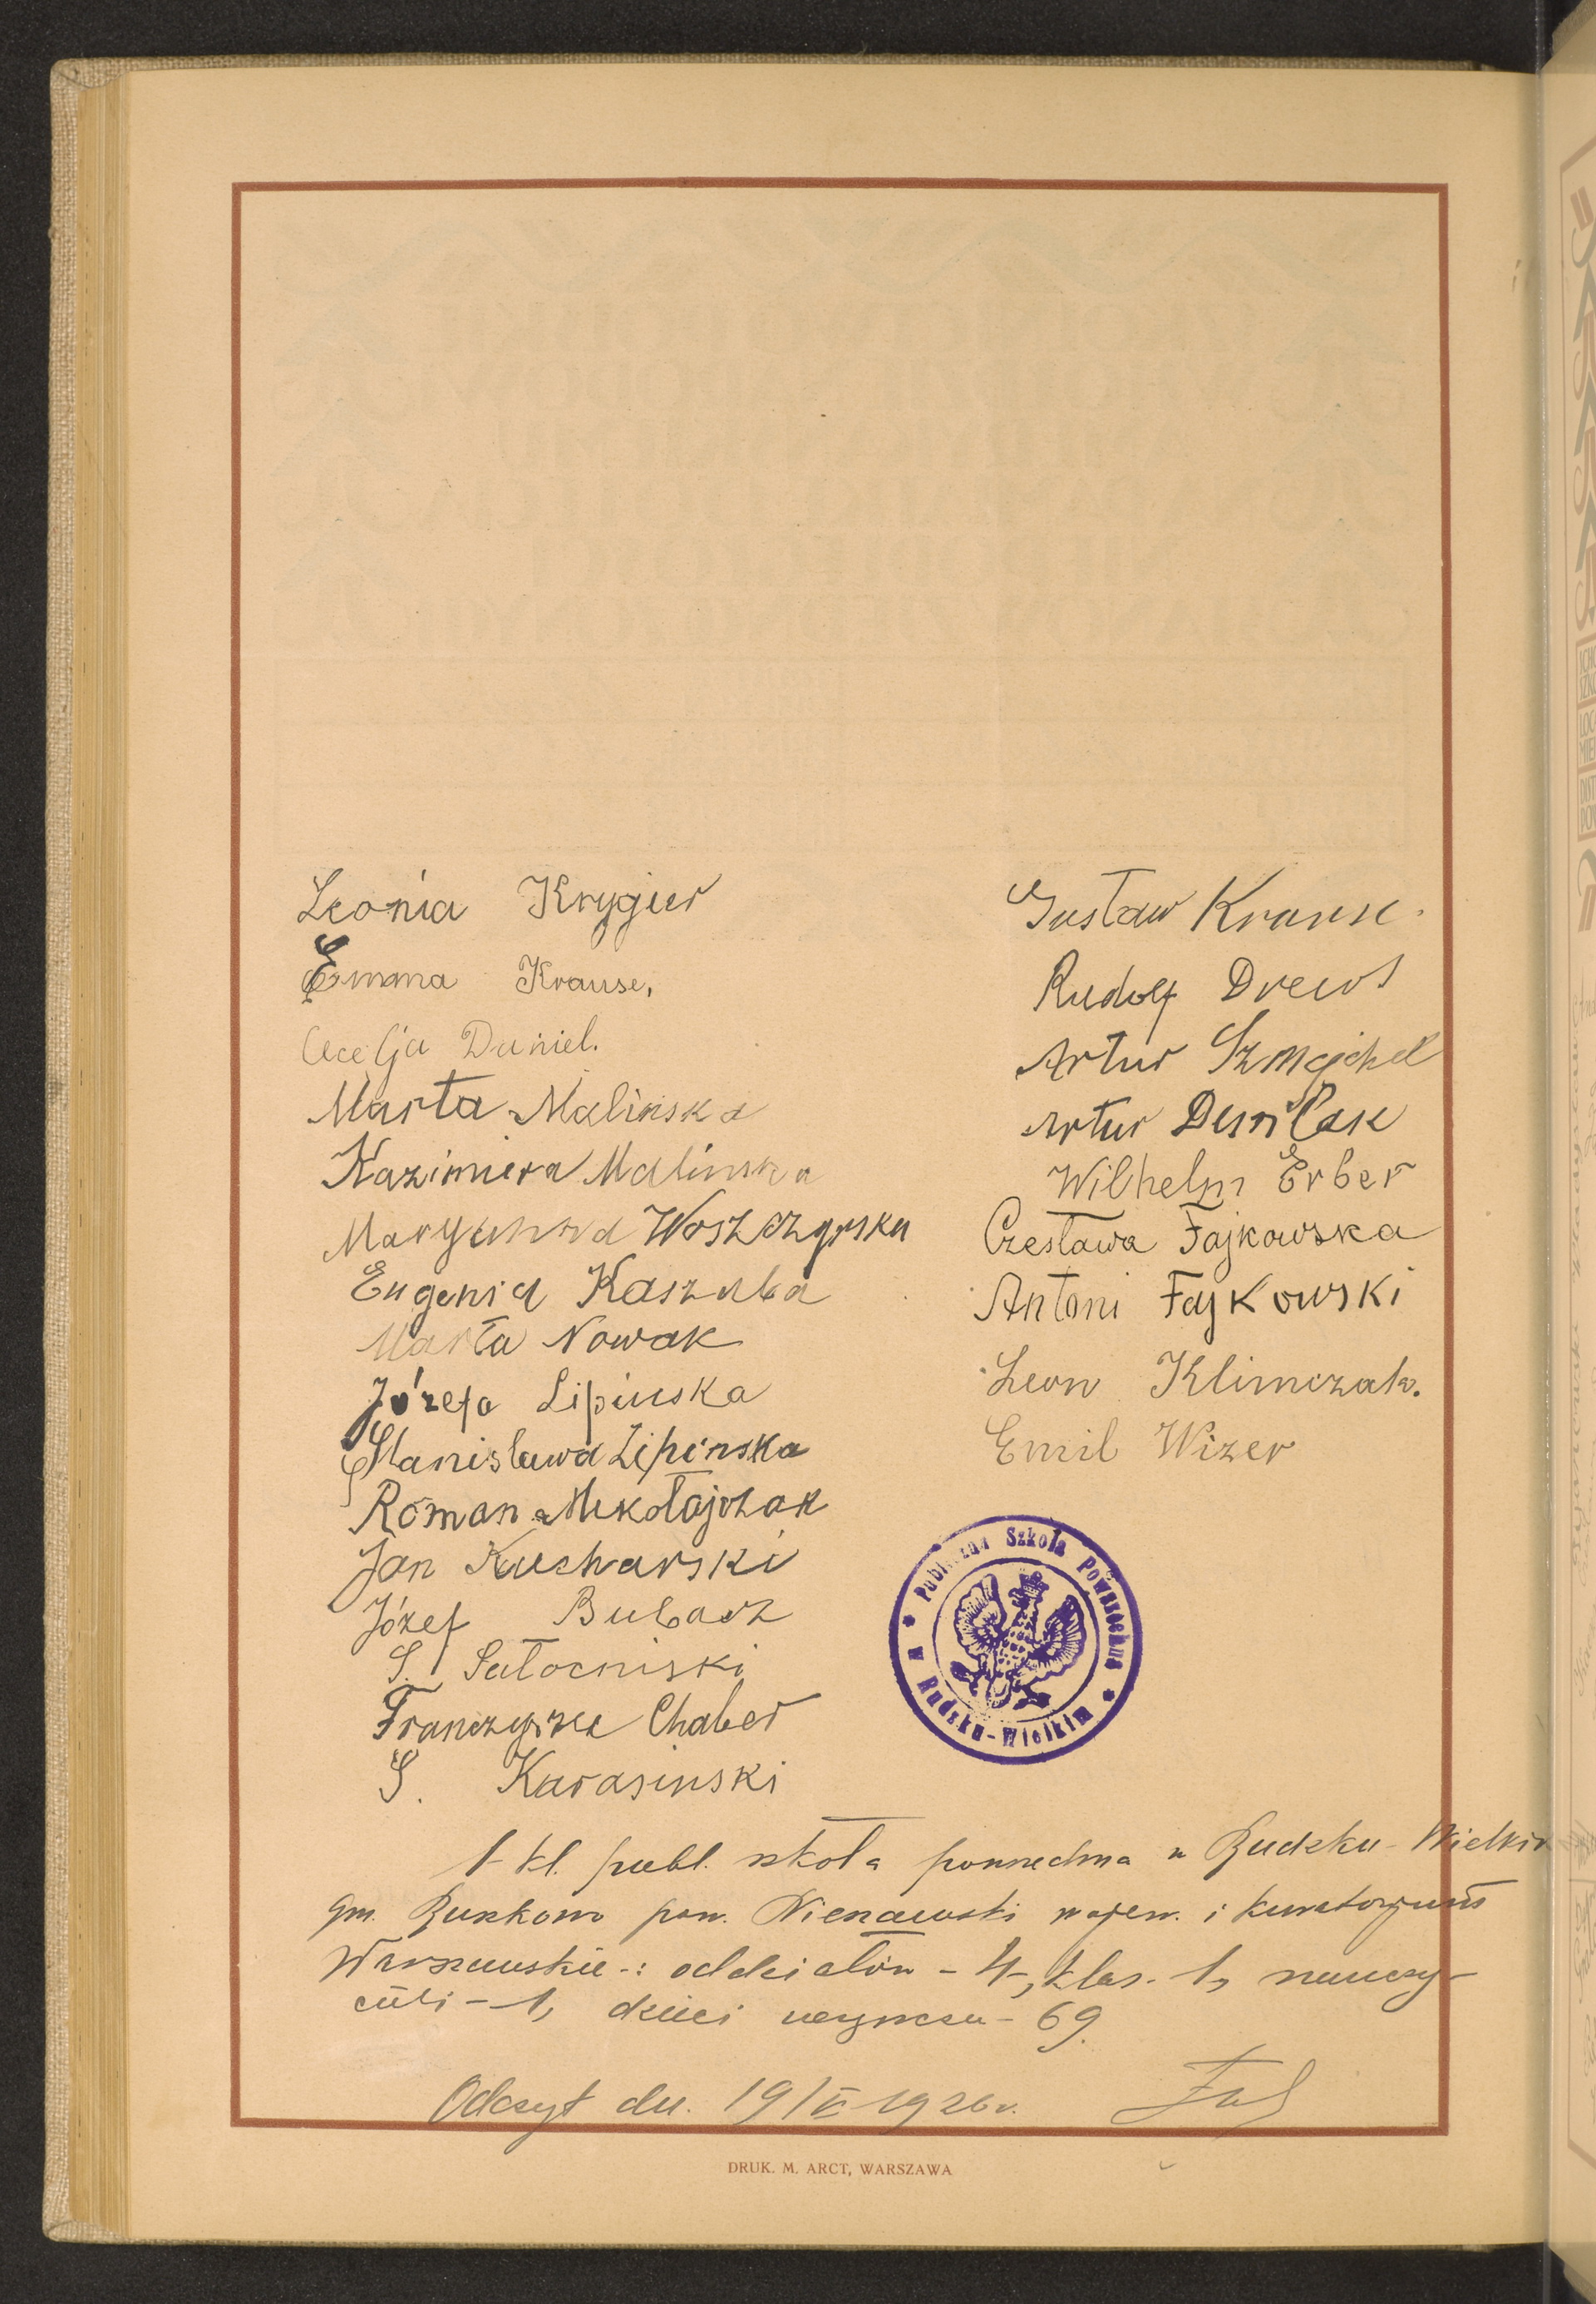 Leonia Krygier
Emma Krause,
Daniel.
Marta Malinska
Kazimiera Malinska
Maryanna Woszczynska
Eugenia Kaszuba
Marta Nowak
Józefa Lipinska
Stanisława Lipinska
Roman Mikołajczak
Jan Kucharski
Józef Bubacz
S.
Chaber
S. Karasinski
Gustaw Krause.
Rudolf Drews
Artur Szmajchel
Artur
Wilhelm Erber
Czesława Fajkowska
Antoni Fajkowski
Leon Klimczak.
Emil Wizer
Publiczna Szkoła Powszechna
w Rudzku-Wielkim
1-kl. publ. szkoła powszechna w Rudzku-Wielkim
gm. pow. Nieszawski wojew. i kuratorjum
Warszawskie-: oddziałów - 4, klas - 1, nauczy-
cieli - 1, dzieci - 69.
Odczyt dn. 19/V 1926 r.
DRUK. M. ARCT, WARSZAWA